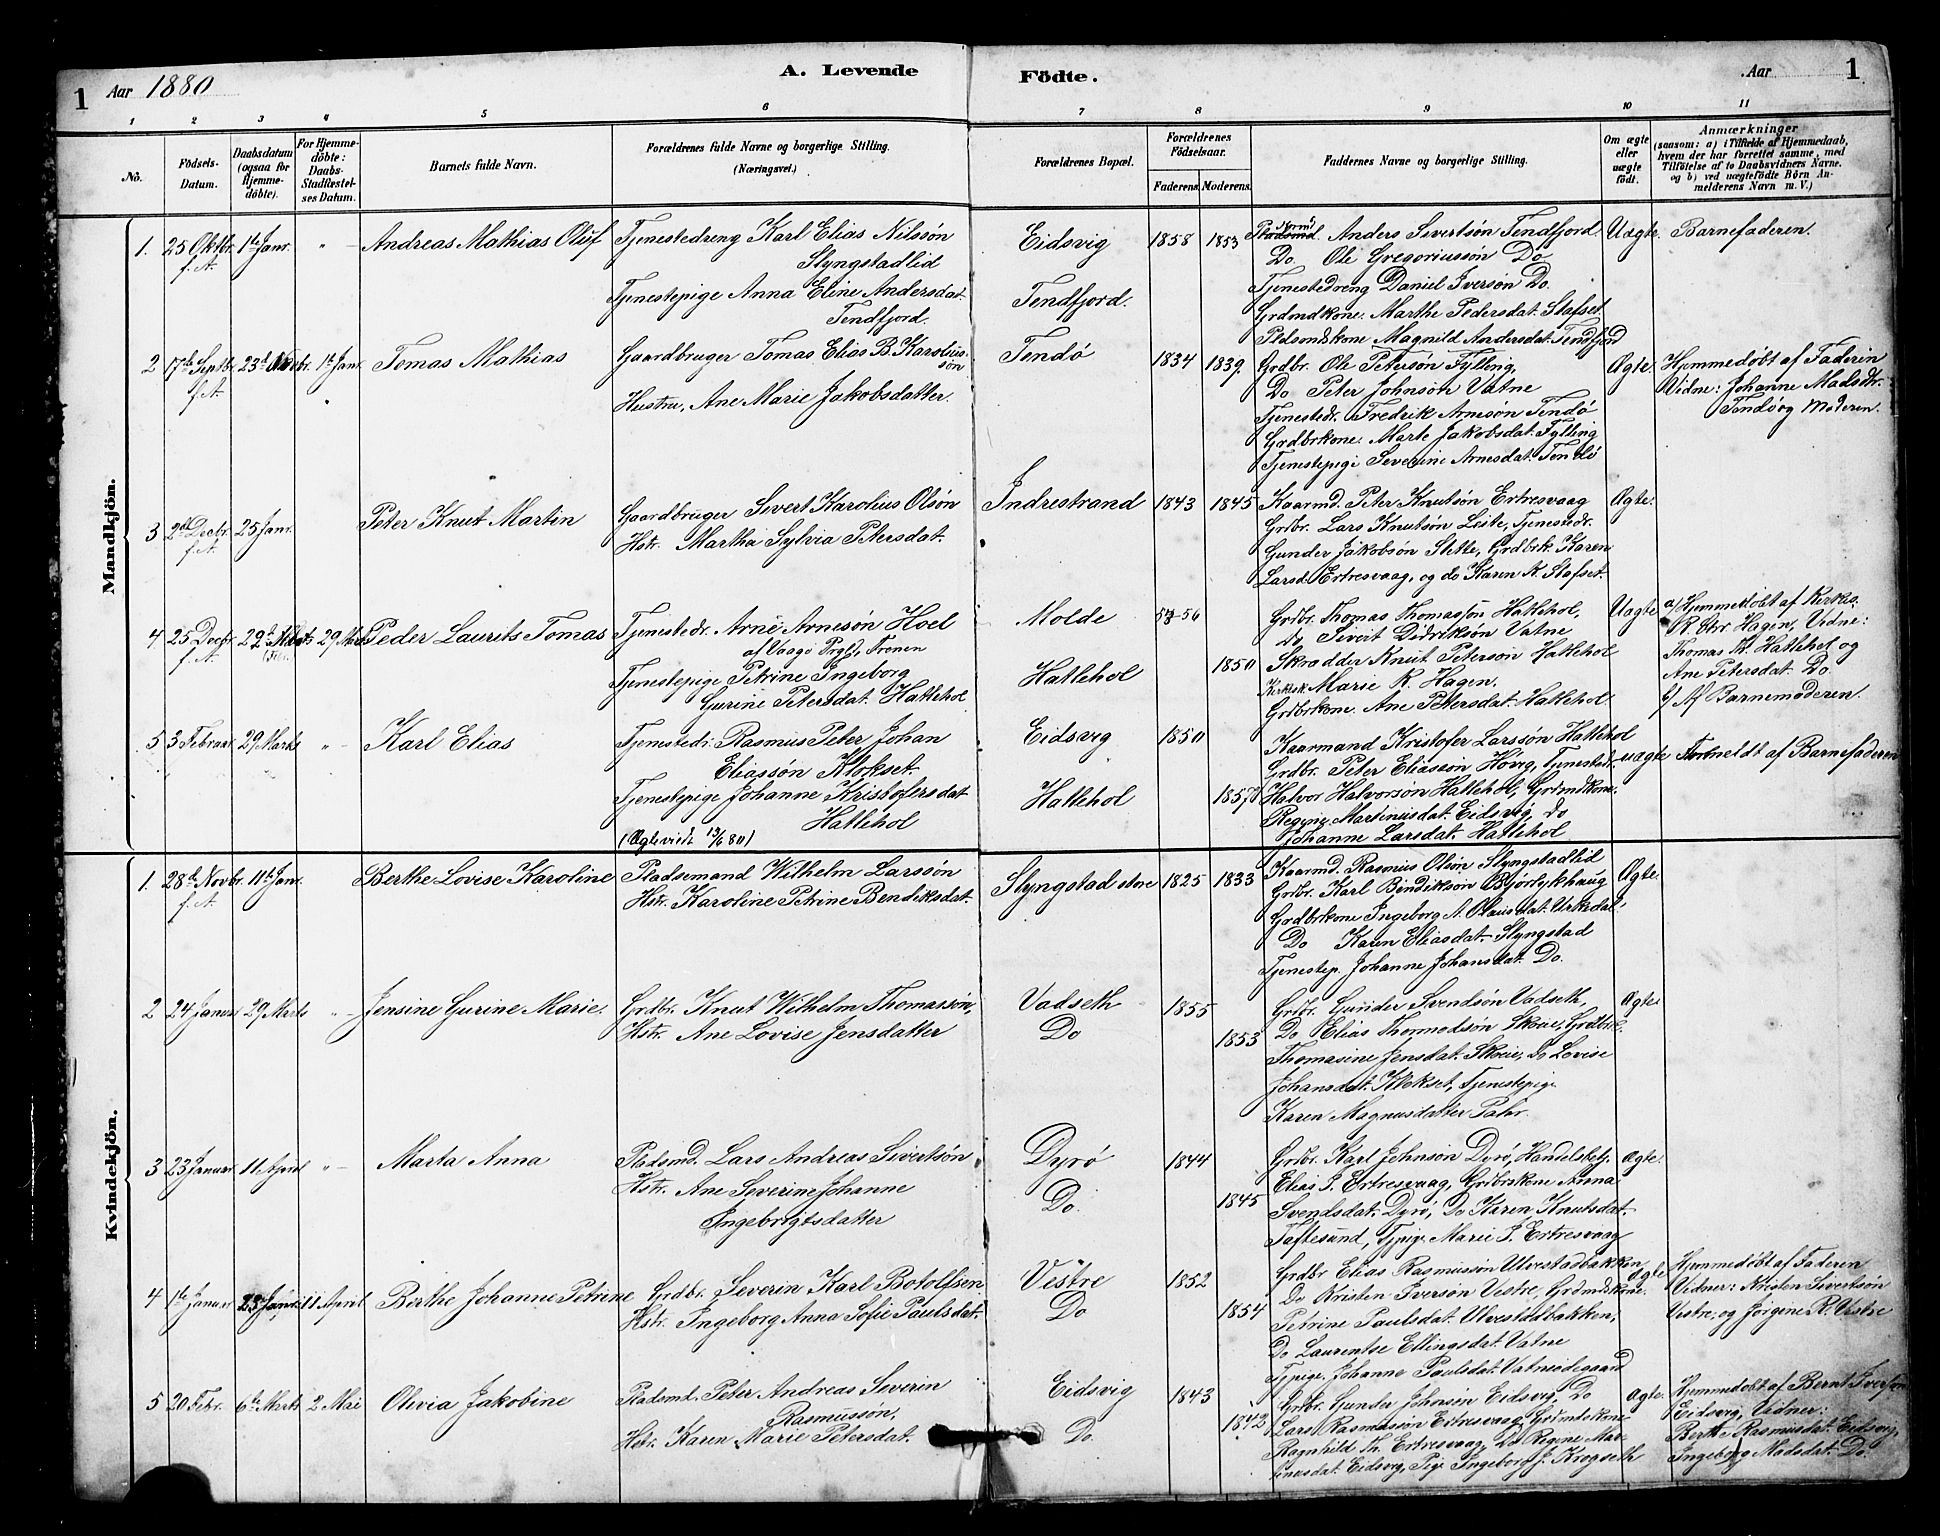 1 Aar 1880 A. Levende Födte. Aar 1
1 2 3 4 5 6 7 8 9 10 11
No. Födsels-Datum. Daabsdatum (ogsaa for Hjemme-döbte). For Hjemme-döbte: Daabs-Stadfæstel-ses Datum. Barnets fulde Navn. Forældrenes fulde Navne og borgerlige Stilling. (Næringsvei.) Forældrenes Bopæl. Forældrenes Födselsaar. Faderens. Moderens. Faddernes Navne og borgerlige Stilling. Om ægte eller uægte födt. Anmærkninger (saasom: a) i Tilfælde af Hjemmedaab, hvem der har forrettet samme, med Tilföielse af to Daabsvidners Navne. og b) ved uægtefödte Börn Anmelderens Navn m. V.)
Mandkjön.
1. 25 Oktbr. f.A. 1te Janr. " Andreas Mathias Oluf
Tjenestedreng Karl Elias Nilssön
Slyngstadlid
Tjenestepige Anna Eline Andersdat.
Tendfjord.
Eidsvig 1858 1853
Tendfjord.
Anders Sivertsön Tendfjord.
Do. Ole Gregoriussön Do
Tjenestedreng Daniel Iversön Do.
Grdmdkone. Marthe Pedersdat. Stafset
Pldsmdskone Magnild Andersdat. Tendfjord
Uægte. Barnefaderen.
2 17de Septbr. f.A. 23d Novbr. 1te Janr. Tomas Mathias
Gaardbruger Tomas Elias B. Karolius-
sön
Hustru, Ane Marie Jakobsdatter.
Tendö 1834 1839.
Grdbr. Ole Petersön Fylling,
Do Peter Johnsön Vatne
Tjenestedr. Fredrik Arnesön Tendö
Grdbrkone. Marte Jakobsdat. Fylling
Tjenestepige Severine Arnesdat. Tendö
Ægte. Hjemmedöbt af Faderen
Vidne: Johanne Madsdtr.
Tendö og Moderen.
3 2den Decbr. f.A. 25 Janr. Peter Knut Martin
Gaardbruger Sivert Karolius Olsön
Hstr. Martha Sylvia Petersdat.
Indrestrand 1843 1845
Kaarmd. Peter Knutsön Ertresvaag
Grdbr. Lars Knutsön Leite, Tjenestedr.
Gunder Jakobsön Slette, Grdbrk. Karen
Larsd. Ertresvaag, og do Karen K. Stafset.
Ægte.
4 25 Decbr. f.A. 29 Marts Peder Laurits Tomas
Tjenestedr. Arne Arnesön Hoel
af Vaagö Prgld, Frenen
Tjenestepige Petrine Ingeborg
Gurine Petersdat. Hatlehol
Molde 56
Hatlehol 1850
Grdbr. Thomas Thomassön Hatlehol,
do Siveit Didriksön Vatne
Skrædder Knut Petersön Hatlehol
Marie K. Hagen.
Grdbrkone. Ane Petersdat. Hatlehol
Uægte a/ Hjemmedöbt af Kirkes.
K. Hagen, Vidne:
Thomas K. Hatlehol og
Ane Petersdat. Do.
b/ Af Barnemoderen.
5 3 Februar. 29 Marts " Karl Elias
Tjenestedr. Rasmus Peter Johan
Eliassön Klokset.
Tjenestepige Johanne Kristofersdat
Hatlehol
(Ægteviede 13/6 80)
Eidsvig 1850
Hatlehol 1857
Kaarmand Kristofer Larssön Hatlehol
Grdbr. Peter Eliassön Hovig, Tjenestedr.
Halvor Halvorsön Hatlehol, Grdmdkone.
Regine Martinusdat. Eidsvig, do
Johanne Larsdat. Hatlehol
uægte Formeldt af Barnefaderen
Kvindekjön.
1. 28de Novbr. f.A. 11te Janr. Berthe Lovise Karoline
Pladsemand Wilhelm Larssön
Hstr. Karoline Petrine Bendiksdat.
Slyngstad etne 1825 1833
Kaarmd. Rasmus Olsön Slyngstadlid
Grdbr. Karl Bindiksön Björlykhaug
Grdbrkone Ingeborg A. Olausdat. Urkedal.
Do Karen Eliasdat. Slyngstad
Tjenestep. Johanne Johansdat. Do.
Ægte.
2 24 Januar 29 Marts " Jensine Gurine Marie.
Grdbr. Knut Wilhelm Thomassön,
Hstr. Ane Lovise Jensdatter
Vadseth 1855
Do 1853
Grbr. Gunder Svendsön Vadseth,
Do Elias Thormodsön Skoie, Grdbrk.
Thomasine Jensdat. Skoie, Do Lovise
Johansdat. Klokset, Tjenestepige
Karen Magnusdatter Fahr.
Ægte
3 23 Januar. 11 April " Marta Anna
Pladsmd. Lars Andreas Sivertsön
Hstr. Ane Severine Johanne
Ingebrigtsdatter
Dyrö 1844
Do. 1845
Grbr. Karl Johnsön Dyrö, Handelsbetj.
Elias J. Ertresvaag, Grdbrskone Anna
Svendsdat. Dyrö, Do Karen Knutsdat.
Taftesund, Tjpige, Marie J. Ertresvaag
Ægte.
4 1te Januar 28 Janr. 11 April Berthe Johanne Petrine
Grdbr. Severin Karl Botolfsen
Hstr. Ingeborg Anna Sofie Paulsdat.
Vestre 1852
Do 1854
Grdbr Elias Rasmussön Ulvestadbakken
Do Kristen Iversön Vestre, Grdmdskone.
Petrine Paulsdat. Ulvestadbakken,
Do Laurentse Ellingsdat. Vatne
Tjpige, Johanne Paulsdat. Vatneödegaard
ægte Hjemmedöbt af Faderen
Vidner: Kristen Sivertsön
Vestre, og Jörgine R. Vestre
5 20 Febr. 6te Marts 2 Mai Olivia Jakobine
Pladsmd. Peter Andreas Severin
Rasmussön,
Hstr. Karen Marie Petersdat.
Eidsvig 1843
Do. 1842
Grbr. Gunder Johnsön Eidsvig, Do
Lars Rasmussön Ertresvaag, Grdmdskone
Ragnhild Th. Ertresvaag, Do Regine Mar-
tinusdat. Eidsvig, Pige Ingeborg J. Kropseth
Ægte. Hjemmedöbt af Bernt Iversön
Eidsvig, Vidner:
Berthe Rasmusdat. Eidsvig,
Ingeborg Madsdat. Do